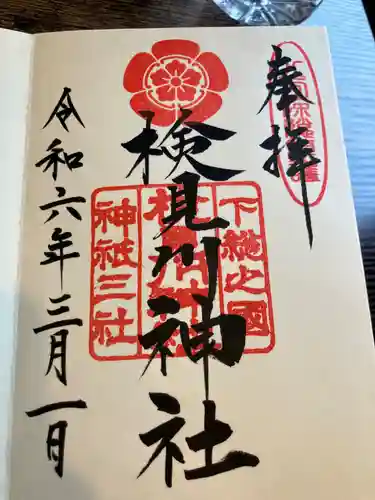 奉拝
検見川神社
下総之国
神祇三社
令和六年三月一日